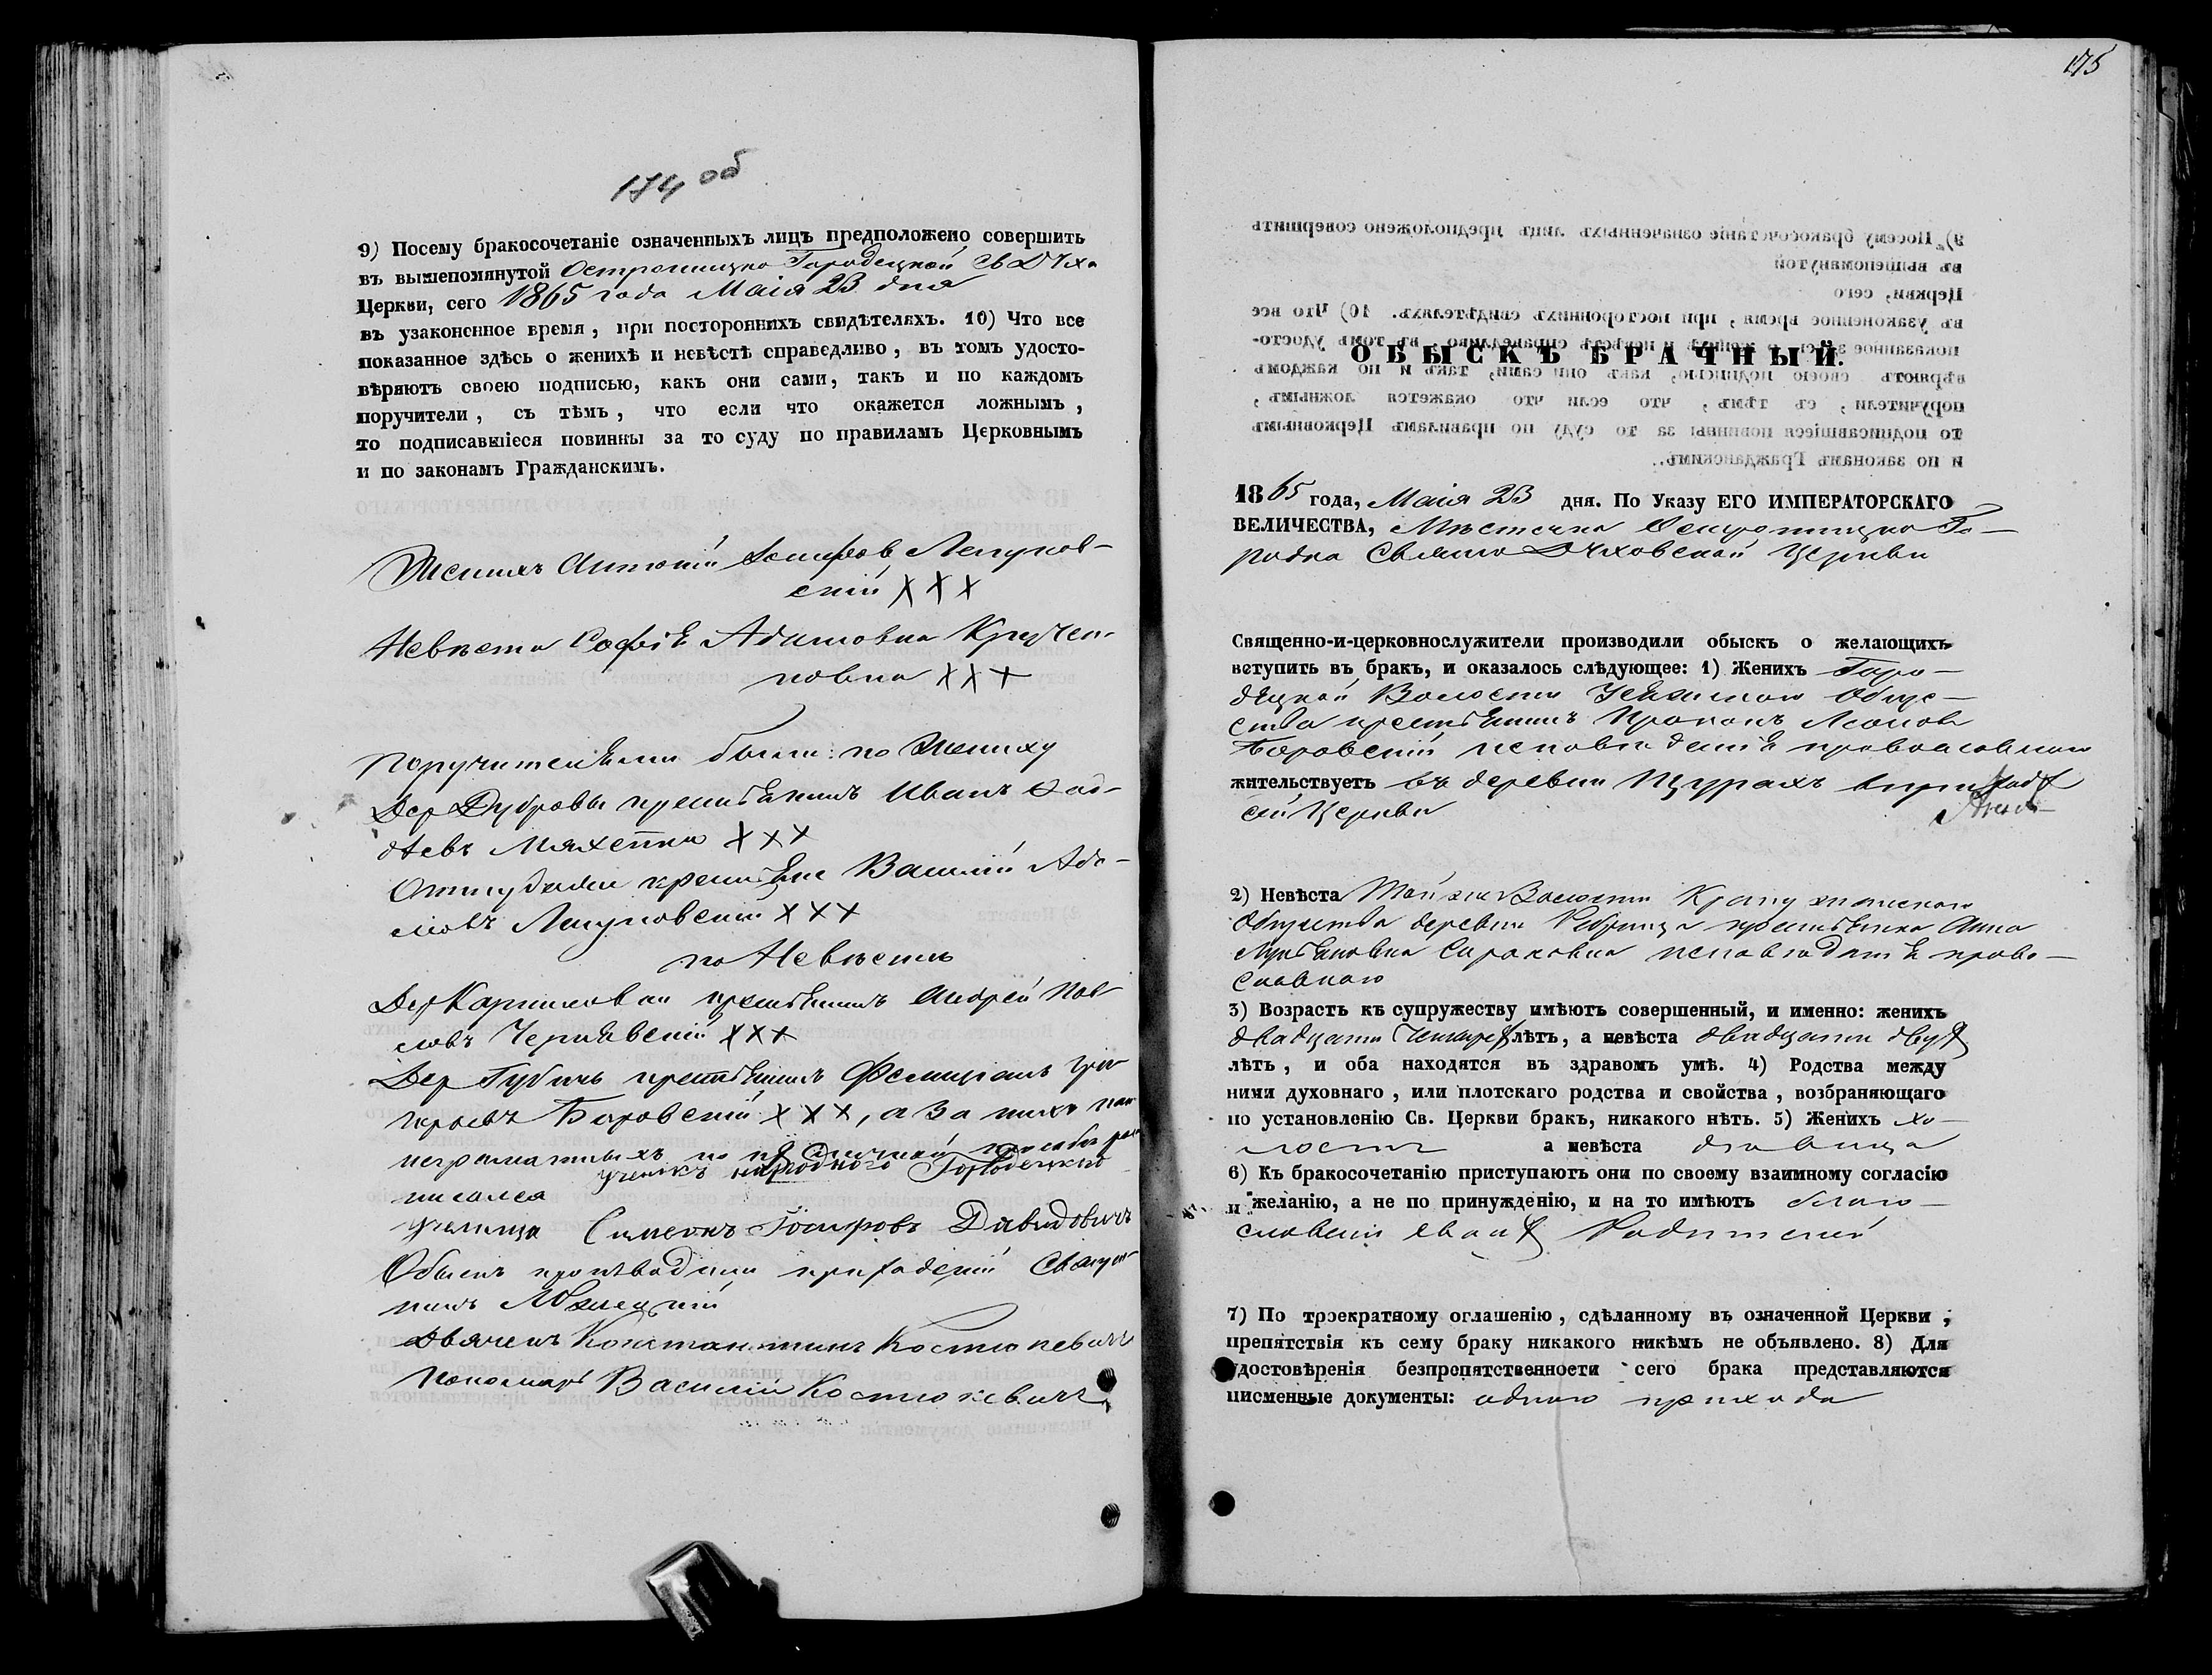 174 об
9) Посему бракосочетаніе означенныхъ лицъ предположено совершить
въ вышепомянутой Острошицко Городецкой Св Духа
Церкви, сего 1865 года Маія 23 дня
въ узаконенное время, при постороннихъ свидѣтеляхъ. 10) Что все
показанное здѣсь о женихѣ и невѣстѣ справедливо, въ томъ удосто-
вѣряютъ своею подписью, какъ они сами, такъ и по каждомъ
поручители, съ тѣмъ, что если что окажется ложнымъ,
то подписавшіеся повинны за то суду по правиламъ Церковнымъ
и по законамъ Гражданскимъ.
Женихъ Антоній Іосифов
скій XXX
Невѣста Софія Адамовна
XXX
Поручителями были: по Жениху
Дер Дубровы крестьянинъ Иванъ
XXX
крестьяне Василій Ада-
мовъ XXX
по Невѣстѣ
Дер крестьянинъ Андрей Пав
ловъ Чернявскій XXX
Дер Губичь крестьянинъ Фелиціанъ Гри
горьевъ Боровскій XXX, а за нихъ
неграмотныхъ по ихъ личной просьбѣ рос
ученикъ народнаго Городецкаго
писался
училища Симеонъ Іосифовъ Давидовичъ
Обыскъ производили приходскій Священ
никъ
Дьячекъ Константинъ Костюкевичъ
Пономарь Василій Костюкевичъ
175
ОБЫСКЪ БРАЧНЫЙ.
1865 года, Маія 23 дня. По Указу ЕГО ИМПЕРАТОРСКАГО
ВЕЛИЧЕСТВА, Мѣстечка Острошицко Го-
родка Свято Духовской Церкви
Священно-и-церковнослужители производили обыскъ о желающихъ
вступить въ бракъ, и оказалось слѣдующее: 1) Женихъ Горо-
децкой Волости Обще-
ства крестьянинъ Прокопъ Леоновъ
Боровскій исповѣданія православнаго
жительствуетъ въ деревни Щурахъ приход
сей Церкви
2) Невѣста Волости
Общества деревни крестьянка Анна
Лукьяновна исповѣданія право-
славнаго
3) Возрастъ къ супружеству имѣютъ совершенный, и именно: женихъ
двадцати Четырехъ лѣтъ, а невѣста двадцати двухъ
лѣтъ, и оба находятся въ здравомъ умѣ. 4) Родства между
ними духовнаго, или плотскаго родства и свойства, возбраняющаго
по установленію Св. Церкви бракъ, никакого нѣтъ. 5) Женихъ хо-
лостъ а невѣста дѣвица
6) Къ бракосочетанію приступаютъ они по своему взаимному согласію
и желанію, а не по принужденію, и на то имѣютъ благо-
словеніи своихъ Родителей
7) По троекратному оглашенію, сдѣланному въ означенной Церкви,
препятствія къ сему браку никакого никѣмъ не объявлено. 8) Для
удостовѣренія безпрепятственности сего брака представляются
писменные документы: одного прихода